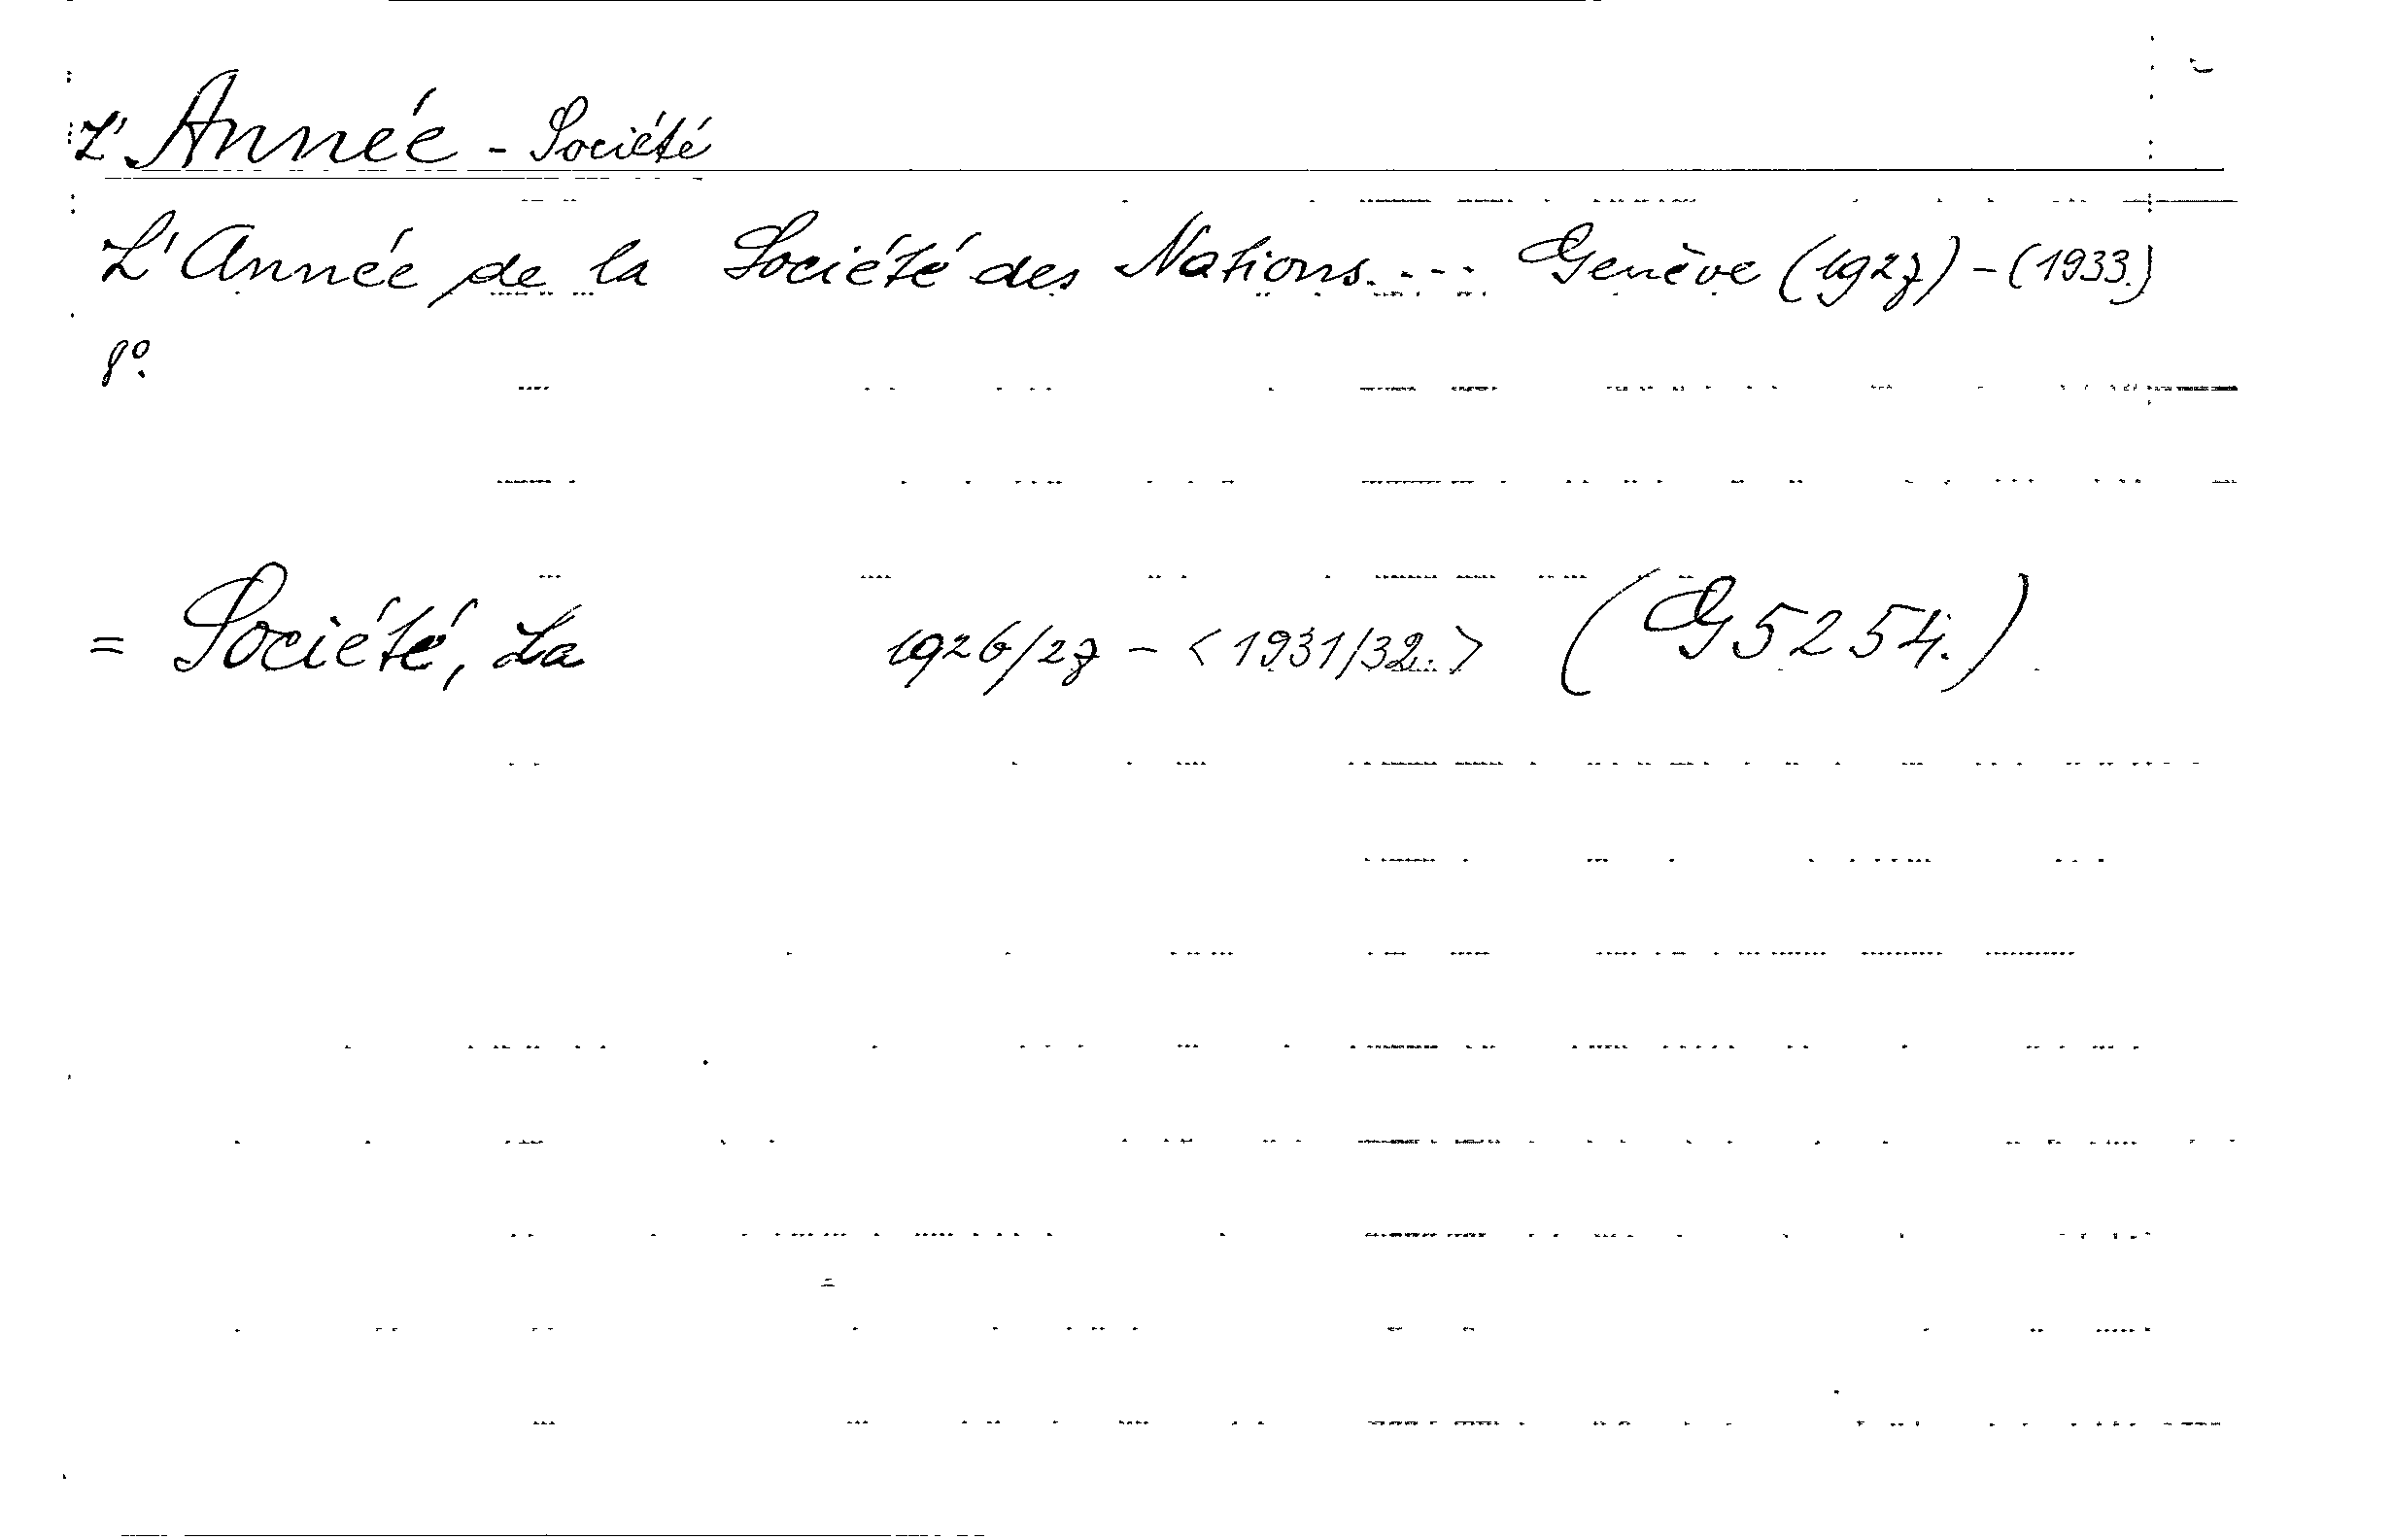 L'Année - Société
L'Année de la Société des Nations. --- Genève (1927) - (1933.)
8°.
= Société, La 1926/27 - <1931/32..> (G5254.)